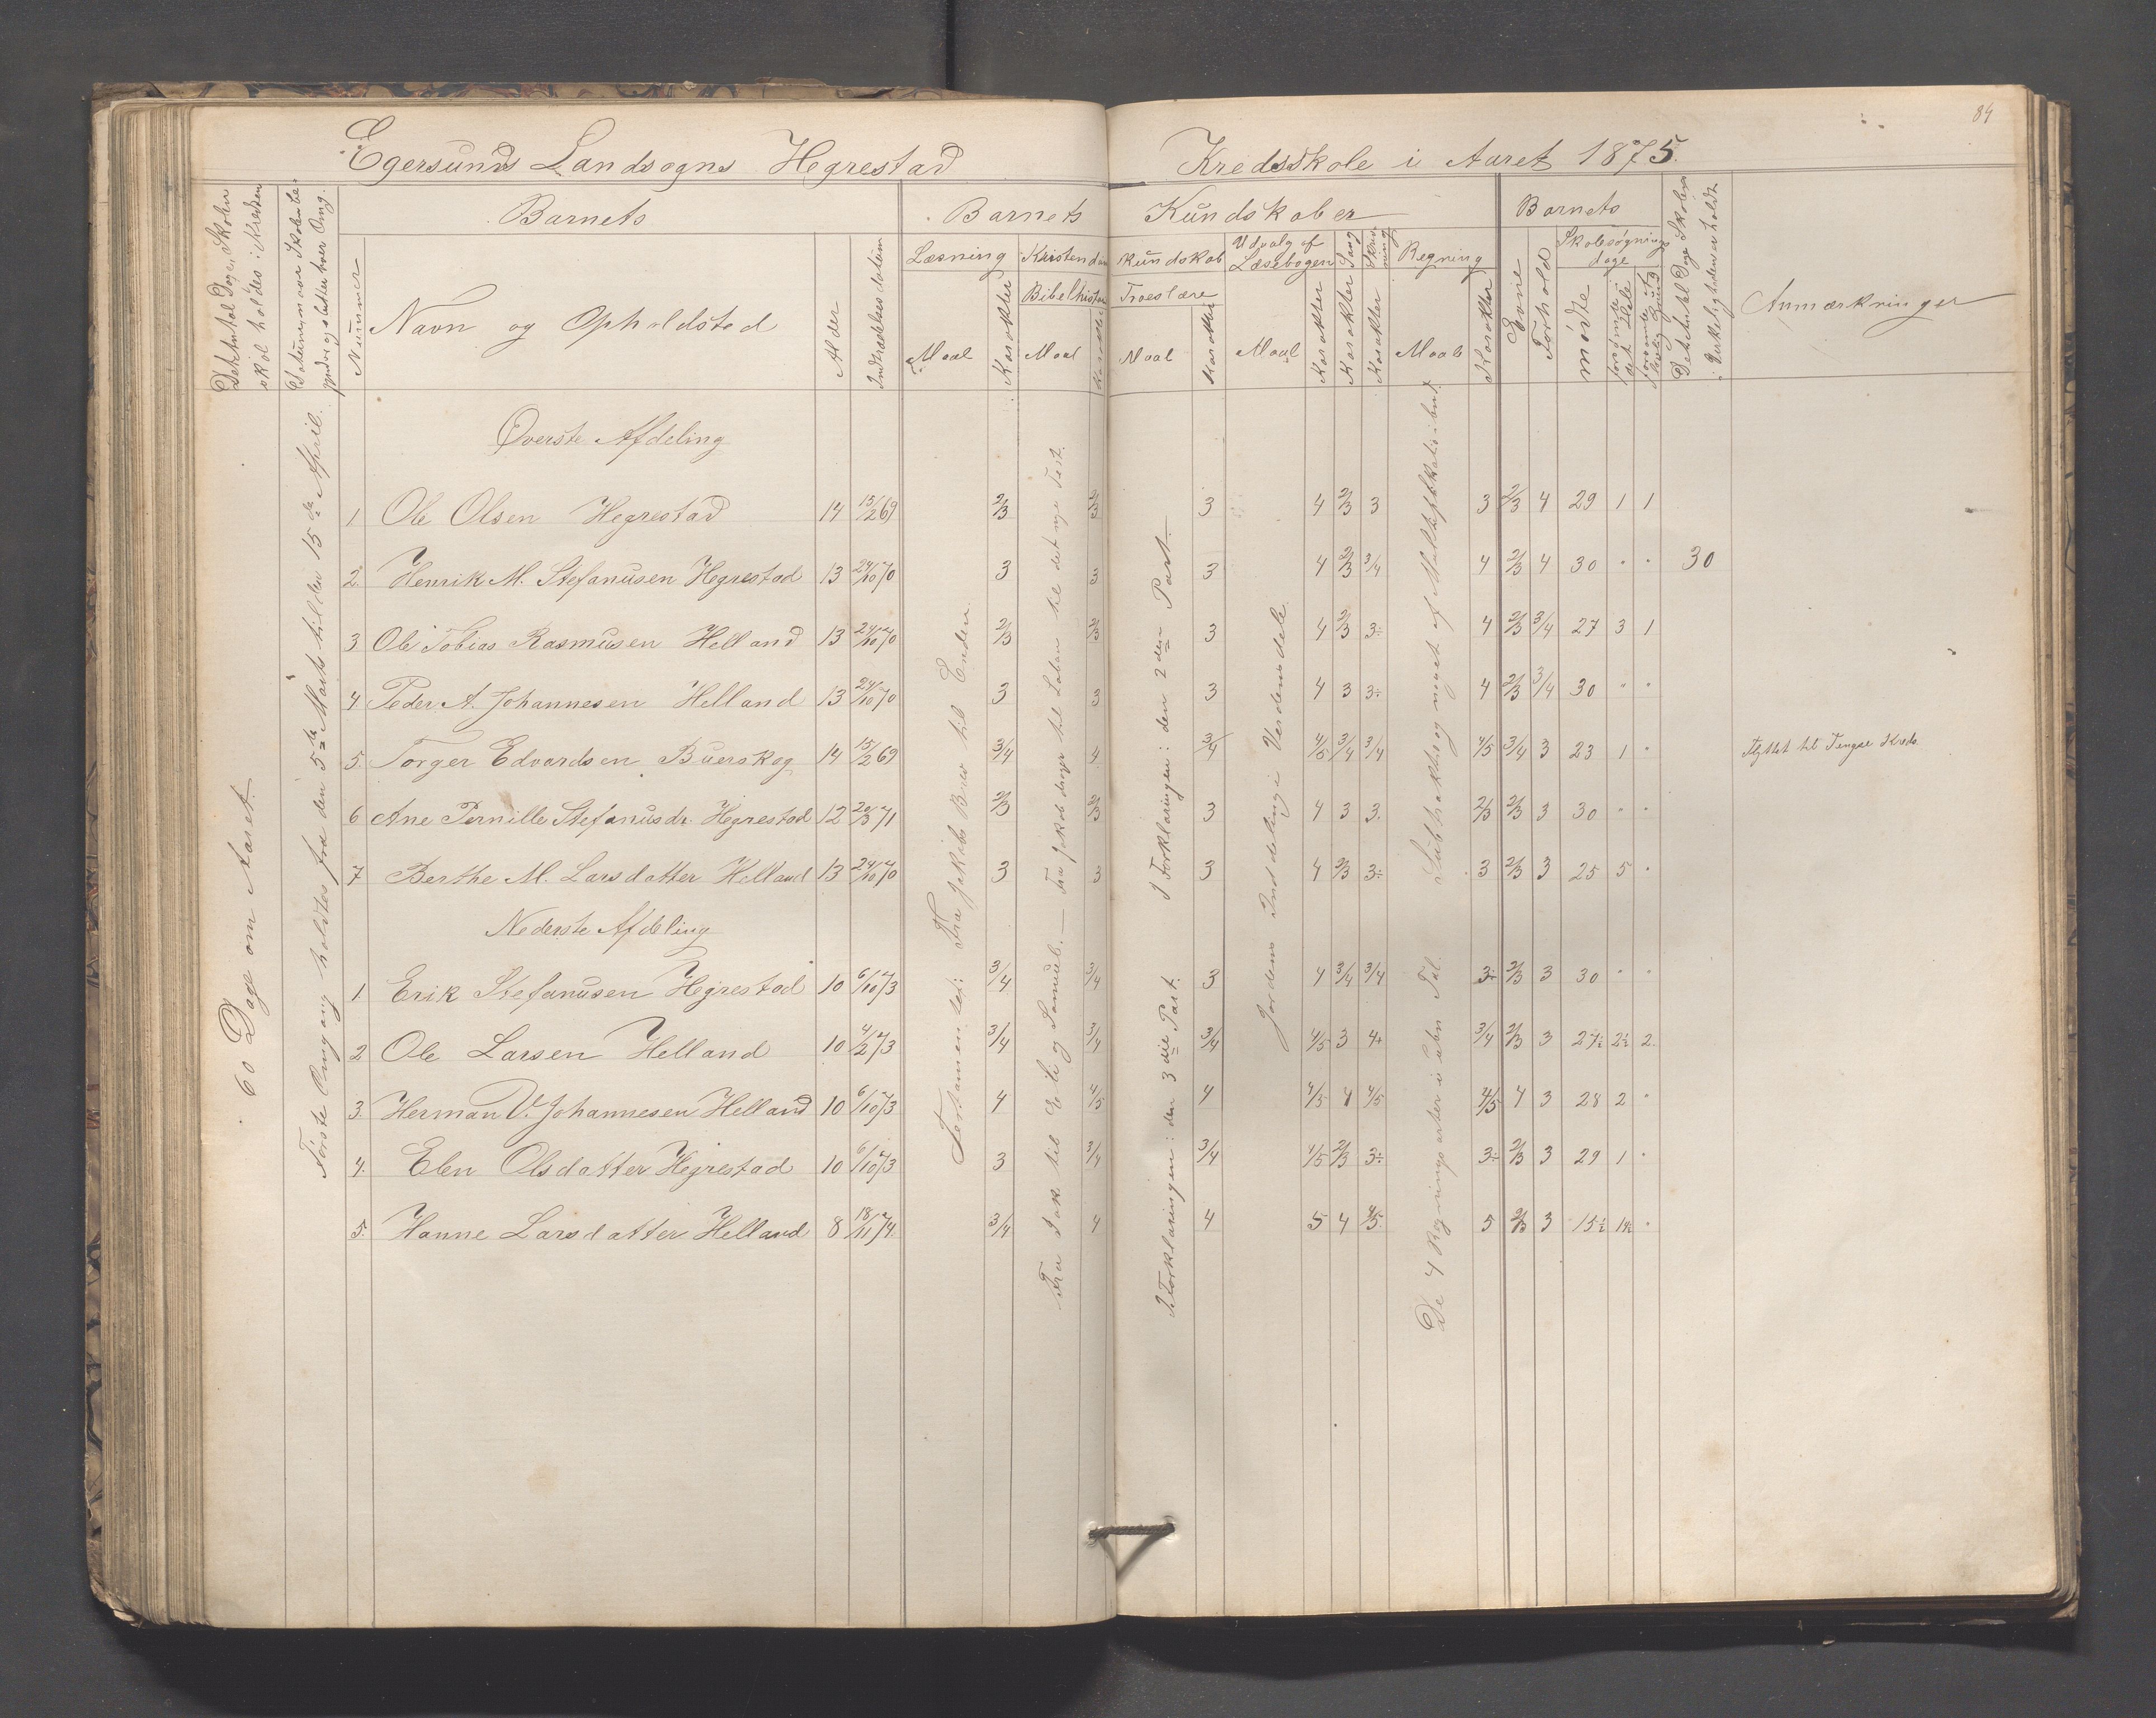 84
Egersunds Landsogns Hegrestad Kredsskole i Aaret 1875.
Det Antal Dage, Skolen skal holdes i Kredsen
Datum, naar Skolen begynder og slutter hver Omg.
Barnets
Barnets Kundskaber
Barnets
Det Antal Dage Skolen i Virkeligheden er holdt
Anmærkninger
Nummer
Navn og Opholdsted
Alder
Indtrædelsesdatum
Læsning
Kristendomskundskab
Udvalg af Læsebogen
Sang
Skrivning
Regning
Evne
Forhold
Skolesøgningsdage
Bibelhistorie
Troeslære
Maal
Karakter
Maal
Karakter
Maal
Karakter
Maal
Karakter
Karakter
Karakter
Maal
Karakter
mødte
forsømte i det Hele
forsømte uden lovlig Grund
60 Dage om Aaret.
Første Omgang holdtes fra den 5te Marts til den 15de April.
Testamentet: Fra Jakobs Brev til Enden.
Fra Isak til Eli og Samuel. — Fra Jakob drager til Laban til det nye Test.
I Forklaringen: den 3die Part. I Forklaringen: den 2den Part.
Jordens Inddeling i Verdensdele.
De 4 Regningsarter i ubn. Tal. Subtraktion og noget af Multiplikation i bn.t.
Øverste Afdeling
1 Ole Olsen Hegrestad 14 15/2 69 2/3 2/3 3 4 2/3 3 3 2/3 4 29 1 1
2. Henrik M. Stefanusen Hegrestad 13 24/10 70 3 3 3 4 2/3 3/4 4 2/3 4 30 " " 30
3 Ole Tobias Rasmusen Helland 13 24/10 70 2/3 2/3 3 4 2/3 3÷ 4 2/3 3/4 27 3 1
4 Peder A. Johannesen Helland 13 24/10 70 3 3 3 4 3 3÷ 4 2/3 3/4 30 " "
5. Torger Edvardsen Buerskog 14 15/2 69 3/4 4 3/4 4/5 3/4 3/4 4/5 3/4 3 23 1 " Flyttet til Tengse Kreds
6 Ane Pernille Stefanusdr. Hegrestad 12 20/3 71 2/3 2/3 3 4 3 3. 2/3 2/3 3 30 " "
7 Berthe M. Larsdatter Helland 13 24/10 70 3 3 3 4 2/3 3÷ 3 2/3 3 25 5 "
Nederste Afdeling
1. Erik Stefanusen Hegrestad 10 6/10 73 3/4 3/4 3 4 3/4 3/4 3÷ 2/3 3 30 " "
2 Ole Larsen Helland 10 4/2 73 3/4 3/4 3/4 4/5 3 4+ 3/4 2/3 3 27½ 2½ 2.
3. Herman V. Johannesen Helland 10 6/10 73 4 4/5 4 4/5 4 4/5 4/5 4 3 28 2 "
4. Elen Olsdatter Hegrestad 10 6/10 73 3 3/4 3/4 4/5 2/3 3÷ 3÷ 2/3 3 29 1 "
5. Hanne Larsdatter Helland 8 18/11 74. 3/4 4 4 5 4 4/5 5 2/3 3 15½ 1½ "